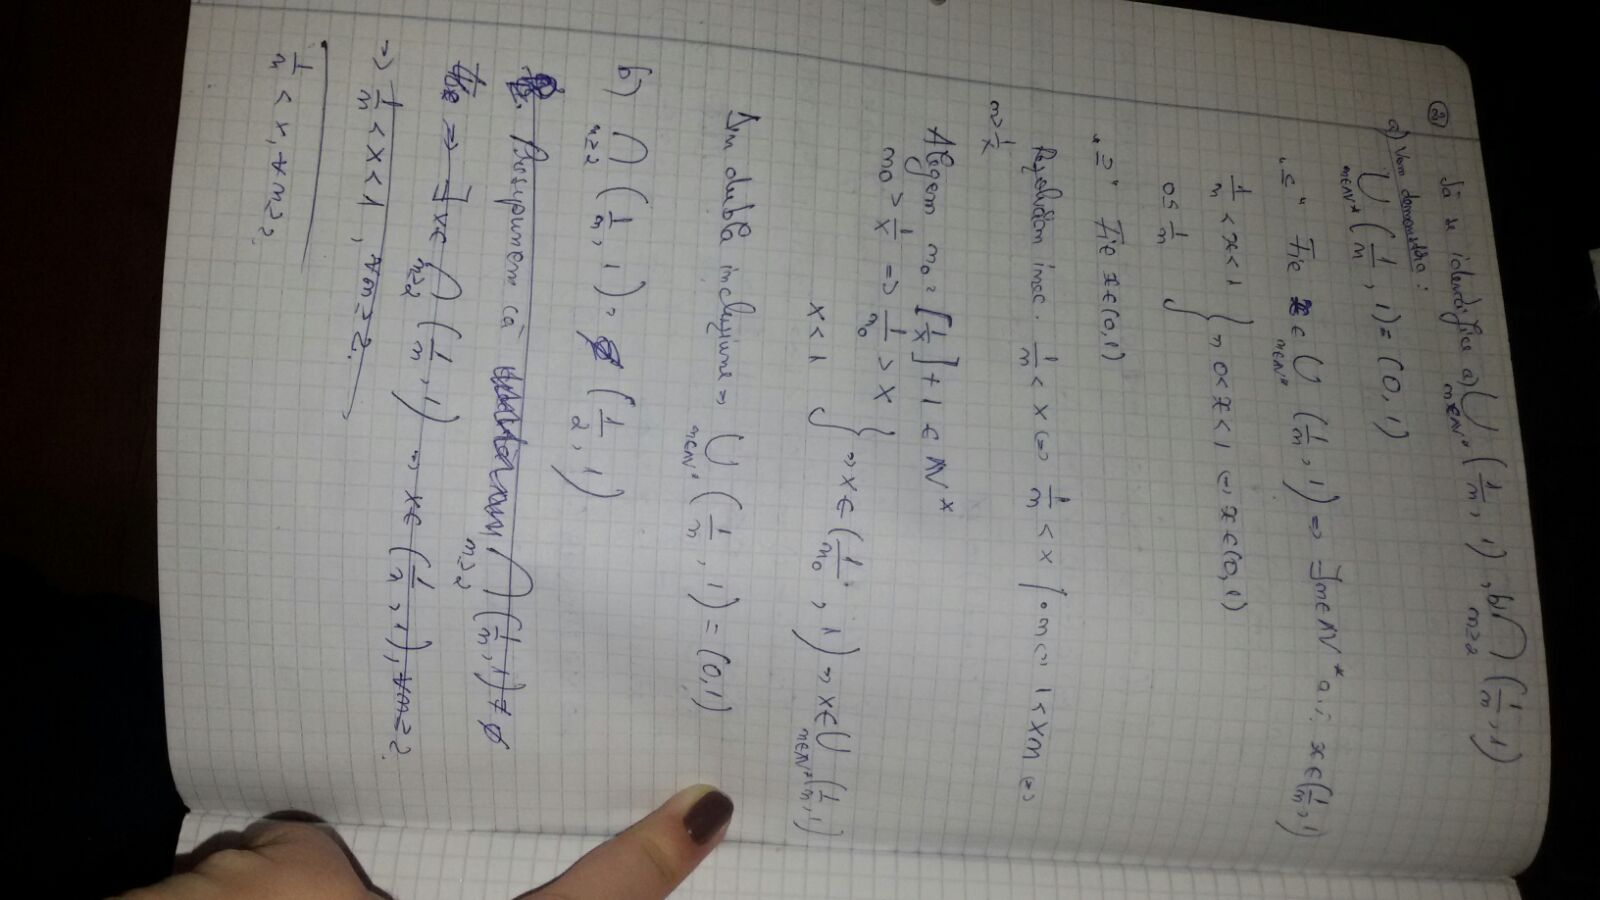 ② Să se identifice a) ⋃ n∈ℕ* (1/n, 1), b) ⋂ n≥2 (1/n, 1)
a) Vom demonstra:
⋃ n∈ℕ* (1/n, 1) = (0, 1)
„⊆" Fie x ∈ ⋃ n∈ℕ* (1/n, 1) => ∃n∈ℕ* a.î. x ∈ (1/n, 1)
1/n < x < 1
0 ≤ 1/n } => 0 < x < 1 <=> x ∈ (0, 1)
„⊇" Fie x ∈ (0, 1)
Rezolvăm inec. 1/n < x <=> 1/n < x | ·n <=> 1 < xn <=>
n > 1/x
Alegem n₀ = [1/x] + 1 ∈ ℕ*
n₀ > 1/x => 1/n₀ > x
x < 1 } => x ∈ (1/n₀, 1) => x ∈ ⋃ n∈ℕ* (1/n, 1)
Din dubla incluziune => ⋃ n∈ℕ* (1/n, 1) = (0, 1)
b) ⋂ n≥2 (1/n, 1) = (1/2, 1)
Presupunem că ⋂ n≥2 (1/n, 1) ≠ ∅
=> ∃ x ∈ ⋂ n≥2 (1/n, 1) => x ∈ (1/n, 1), ∀ n≥2
=> 1/n < x < 1, ∀ n≥2.
1/n < x, ∀ n≥2